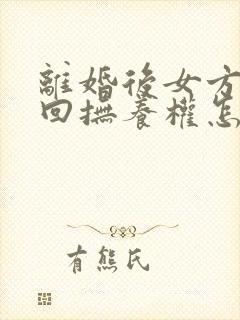 離婚後女方
回撫養權怎
有熊氏